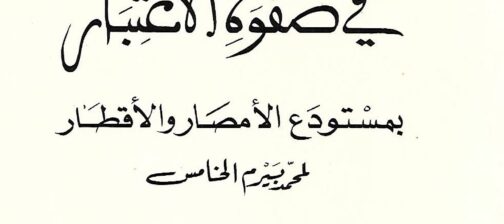 في صفوة الاعتبار
بمسْتودَع الأمصَار والأقطَار
لمحمّد بَيْرم الخامس